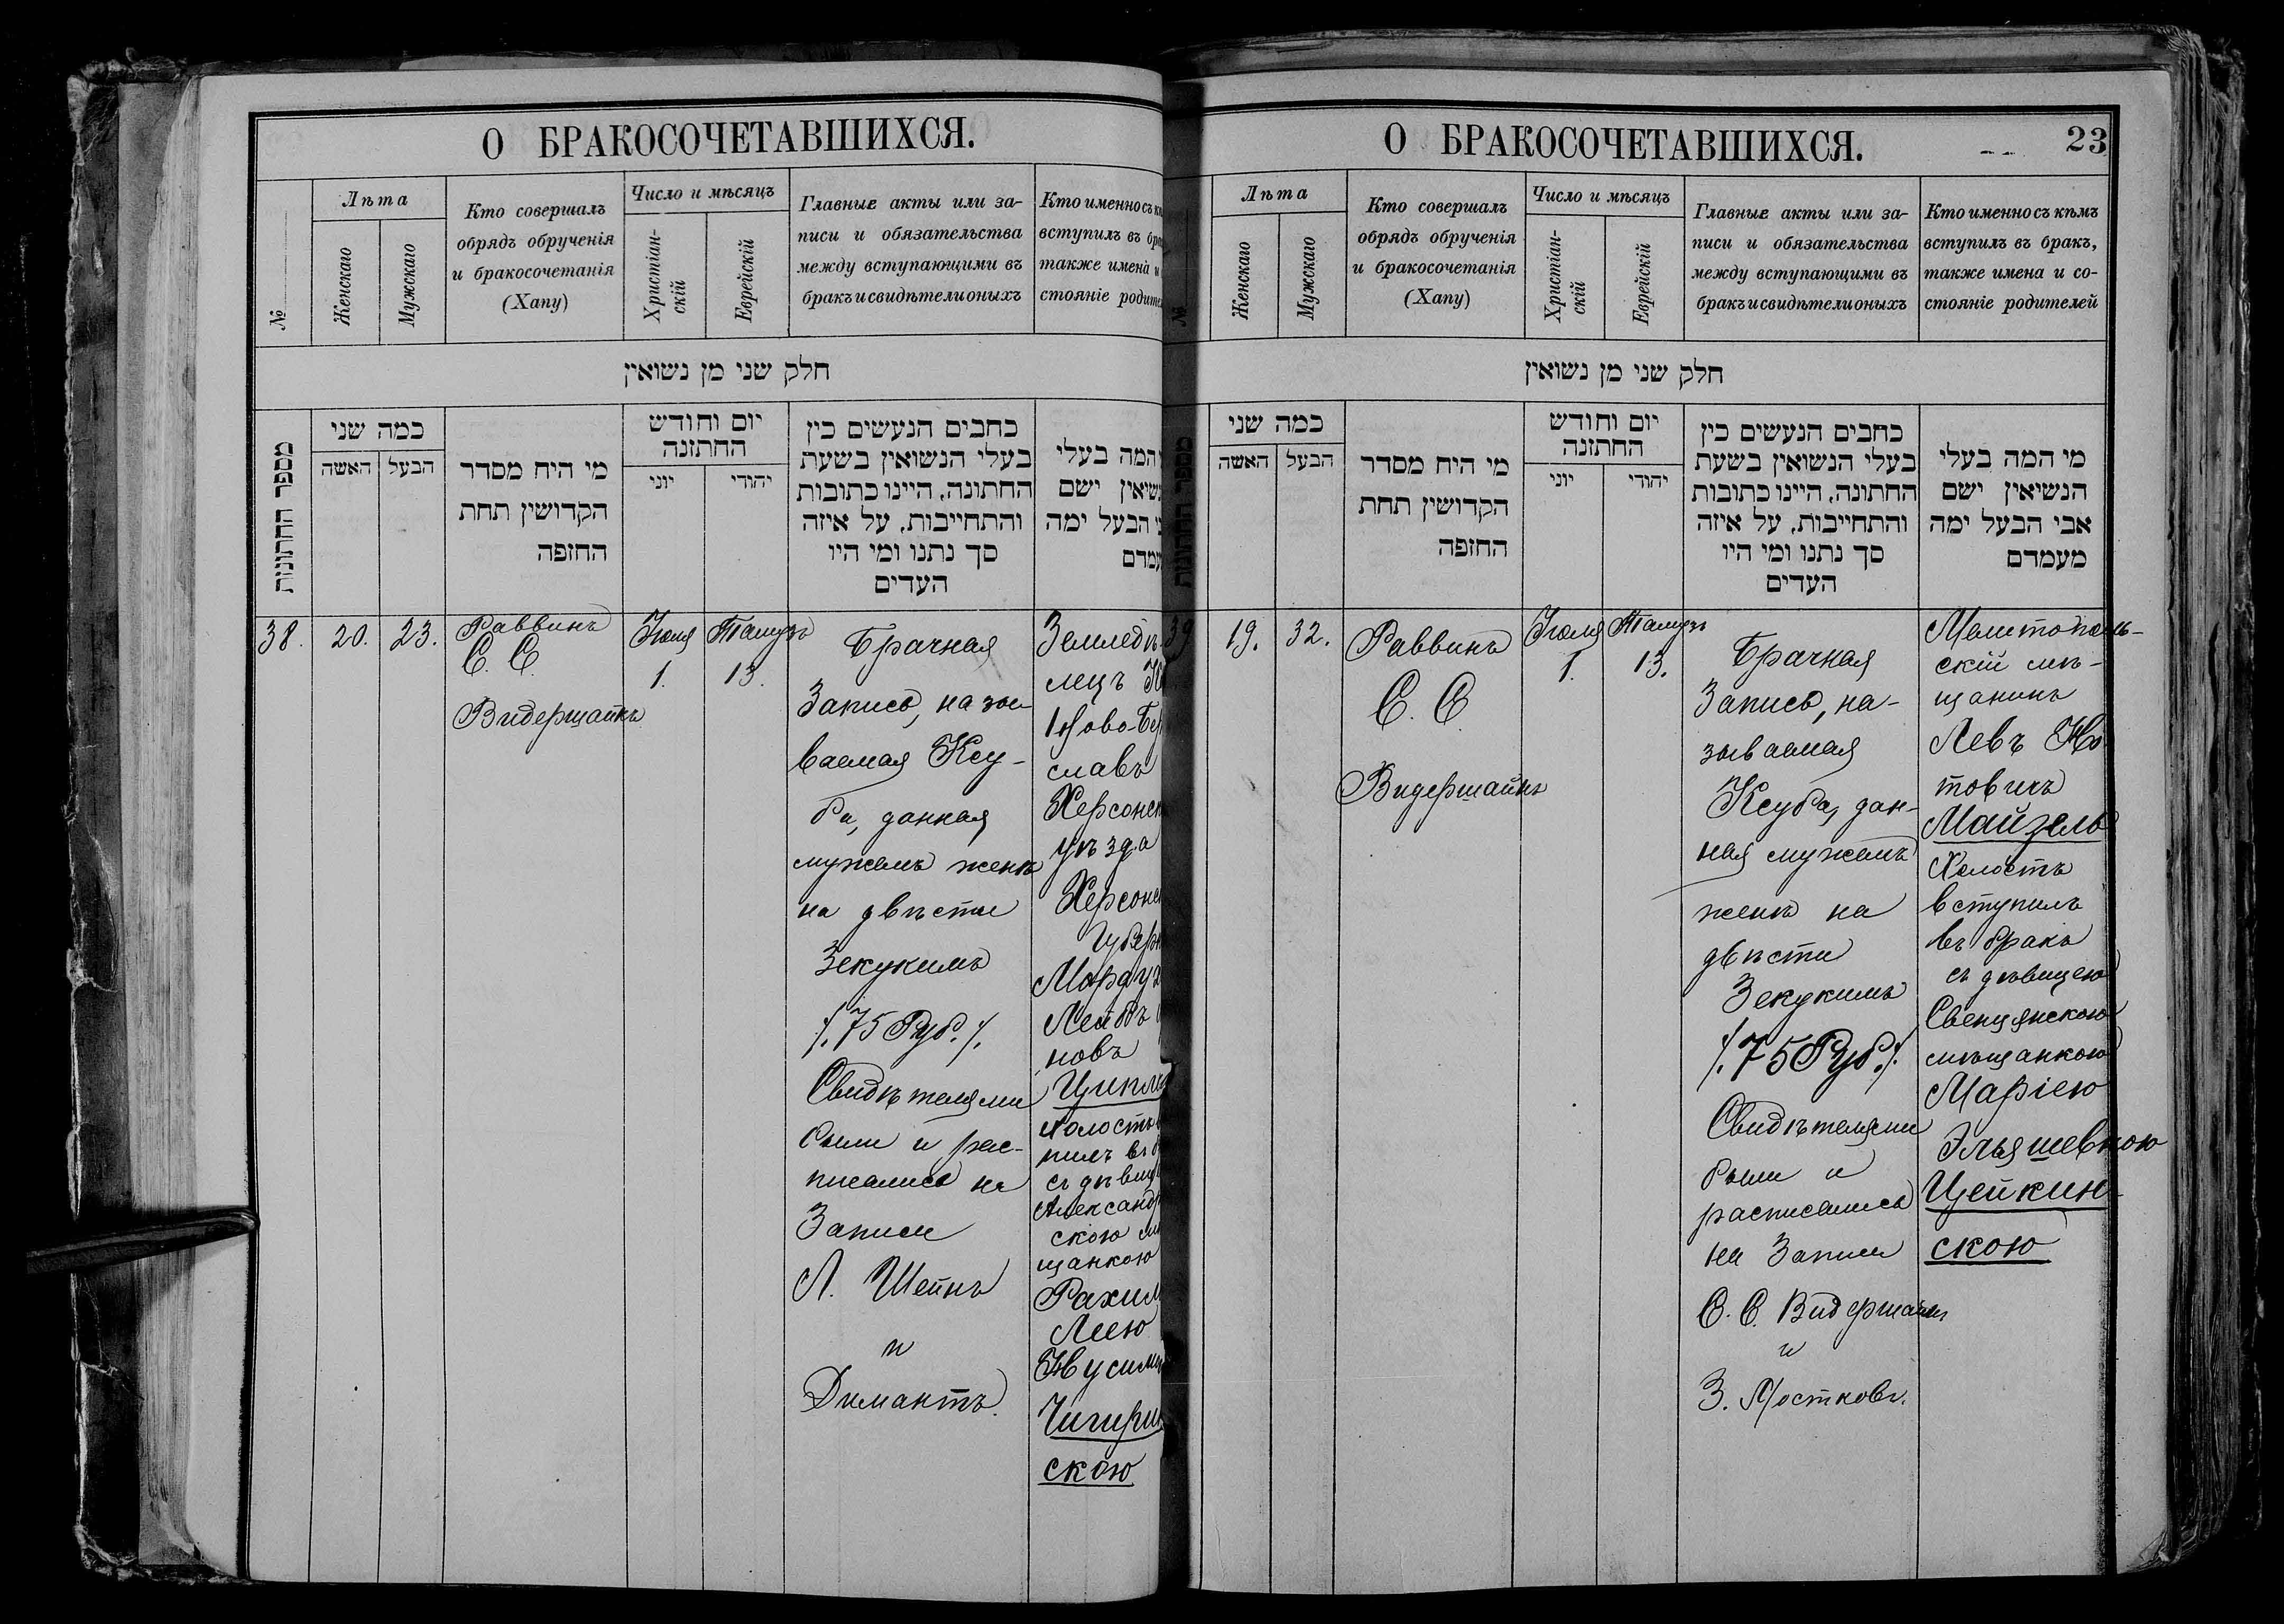 О БРАКОСОЧЕТАВШИХСЯ.
№
Лѣта
Женскаго
Мужскаго
Кто совершалъ
обрядъ обрученія
и бракосочетанія
(Хапу)
Число и мѣсяцъ
Христіан-
скій
Еврейскій
Главные акты или за-
писи и обязательства
между вступающими въ
бракъ и свидѣтели оныхъ
Кто именно съ
вступилъ въ
также имена и
стояніе
חלק שני מן נשואין
מספר החתונות
כמה שני
האשה
הבעל
מי היח מסדר
הקדושין תחת
החזפה
יום וחודש
החתזנה
יוני
יהודי
כחבים הנעשים כין
בעלי הנשואין בשעת
החתונה, היינו כתובות
והתחייבות, על איזה
סך נתנו ומי היו
העדים
המה בעלי
ישם
הבעל ימה
38.
20.
23.
Раввинъ
С. С.
Видершайнъ
Іюля
1.
Тамузъ
13.
Брачная
Запись, назы-
ваемая Ксу-
ба, данная
мужемъ женѣ
на двѣсти
Зекукимъ
/.75 Руб./.
Свидѣтелями
были и рас-
писались на
Записи
Л. Шейнъ
и
Димантъ.
Земледѣ
лецъ
Ново-Бер
славъ
Херсонск
уѣзда
Херсонс
Губерн
Морду
Лейбъ
новъ
Ципл
холостъ
пилъ въ
съ дѣвиц
Александр
скою мѣ
щанкою
Рахил
Леею
Нусим
Чигирин
скою
О БРАКОСОЧЕТАВШИХСЯ.
23
Лѣта
Женскаго
Мужскаго
Кто совершалъ
обрядъ обрученія
и бракосочетанія
(Хапу)
Число и мѣсяцъ
Христіан-
скій
Еврейскій
Главные акты или за-
писи и обязательства
между вступающими въ
бракъ и свидѣтели оныхъ
Кто именно съ кѣмъ
вступилъ въ бракъ,
также имена и со-
стояніе родителей
חלק שני מן נשואין
כמה שני
האשה
הבעל
מי היח מסדר
הקדושין תחת
החזפה
יום וחודש
החתזנה
יוני
יהודי
כחבים הנעשים כין
בעלי הנשואין בשעת
החתונה, היינו כתובות
והתחייבות, על איזה
סך נתנו ומי היו
העדים
מי המה בעלי
הנשיאין ישם
אבי הבעל ימה
מעמדם
39
19.
32.
Раввинъ
С. С.
Видершайнъ
Іюля
1.
Тамузъ
13.
Брачная
Запись, на-
зываемая
Ксуба, дан-
ная мужемъ
женѣ на
двѣсти
Зекукимъ
/.75 Руб./.
Свидѣтелями
были и
расписались
на Записи
С. С. Видершайнъ
и
З. Мостковъ.
Мелитополь-
скій мѣ-
щанинъ
Левъ Но
товичъ
Майзель
Холостъ
вступилъ
въ бракъ
съ дѣвицею
Свенцянскою
мѣщанкою
Маріею
Эльяшевною
Цейкин-
скою